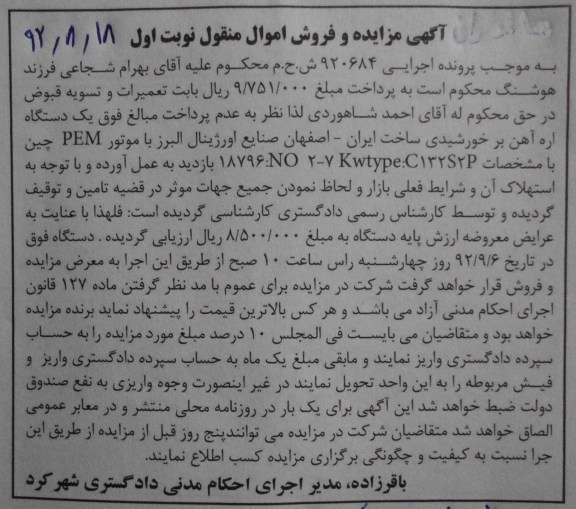 آگهی مزایده و فروش اموال منقول نوبت اول ۹۲٫۸٫۱۸
به موجب پرونده اجرایی ۹۲۰۶۸۴ ش.ح.م محکوم علیه آقای بهرام شجاعی فرزند
هوشنگ محکوم است به پرداخت مبلغ ۹/۷۵۱/۰۰۰ ریال بابت تعمیرات و تسویه قبوض
در حق محکوم له آقای احمد شاهوردی لذا نظر به عدم پرداخت مبالغ فوق یک دستگاه
اره آهن بر خورشیدی ساخت ایران - اصفهان صنایع اورژینال البرز با موتور PEM چین
با مشخصات ۱۸۷۹۶:NO ۲-۷ Kwtype:C۱۳۲S۲P بازدید به عمل آورده و با توجه به
استهلاک آن و شرایط فعلی بازار و لحاظ نمودن جمیع جهات موثر در قضیه تامین و توقیف
گردیده و توسط کارشناس رسمی دادگستری کارشناسی گردیده است: فلهذا با عنایت به
عرایض معروضه ارزش پایه دستگاه به مبلغ ۸/۵۰۰/۰۰۰ ریال ارزیابی گردیده . دستگاه فوق
در تاریخ ۹۲/۹/۶ روز چهارشنبه راس ساعت ۱۰ صبح از طریق این اجرا به معرض مزایده
و فروش قرار خواهد گرفت شرکت در مزایده برای عموم با مد نظر گرفتن ماده ۱۲۷ قانون
اجرای احکام مدنی آزاد می باشد و هر کس بالاترین قیمت را پیشنهاد نماید برنده مزایده
خواهد بود و متقاضیان می بایست فی المجلس ۱۰ درصد مبلغ مورد مزایده را به حساب
سپرده دادگستری واریز نمایند و مابقی مبلغ یک ماه به حساب سپرده دادگستری واریز و
فیش مربوطه را به این واحد تحویل نمایند در غیر اینصورت وجوه واریزی به نفع صندوق
دولت ضبط خواهد شد این آگهی برای یک بار در روزنامه محلی منتشر و در معابر عمومی
الصاق خواهد شد متقاضیان شرکت در مزایده می توانندپنج روز قبل از مزایده از طریق این
جرا نسبت به کیفیت و چگونگی برگزاری مزایده کسب اطلاع نمایند.
باقرزاده، مدیر اجرای احکام مدنی دادگستری شهرکرد